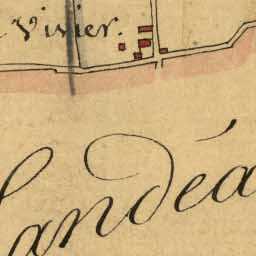 Vivier.
landéa